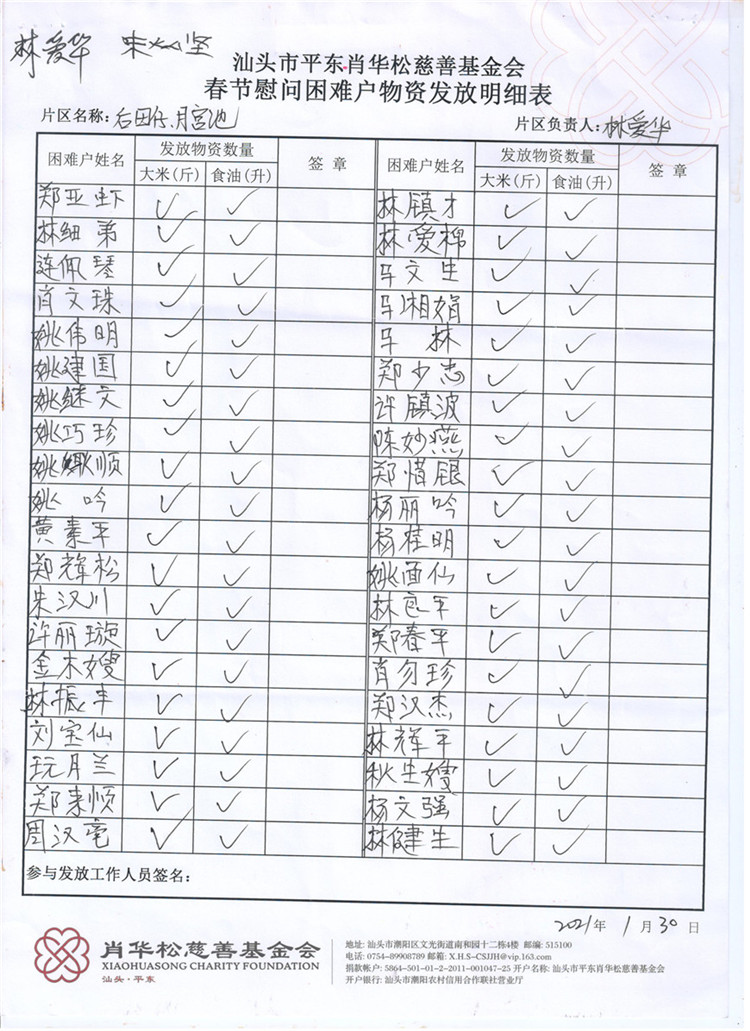 林爱华
汕头市平东肖华松慈善基金会
春节慰问困难户物资发放明细表
片区名称：后田仔.月宫池 片区负责人：林爱华
困难户姓名 发放物资数量 签 章 困难户姓名 发放物资数量 签 章
大米(斤) 食油(升) 大米(斤) 食油(升)
郑亚虾 ✓ ✓ 林镇才 ✓ ✓
林细弟 ✓ ✓ 林爱棉 ✓ ✓
涂佩琴 ✓ ✓ 马文生 ✓ ✓
肖文珠 ✓ ✓ 马湘娟 ✓ ✓
姚伟明 ✓ ✓ 马林 ✓ ✓
姚建国 ✓ ✓ 郑少忠 ✓ ✓
姚继文 ✓ ✓ 许镇波 ✓ ✓
姚巧珍 ✓ ✓ 陈妙燕 ✓ ✓
姚 顺 ✓ ✓ 郑惜银 ✓ ✓
姚吟 ✓ ✓ 杨丽吟 ✓ ✓
黄素平 ✓ ✓ 杨桂明 ✓ ✓
郑辉松 ✓ ✓ 姚 仙 ✓ ✓
朱汉川 ✓ ✓ 林 平 ✓ ✓
许丽璇 ✓ ✓ 郑春平 ✓ ✓
金木嫂 ✓ ✓ 肖勿珍 ✓ ✓
林振丰 ✓ ✓ 郑汉杰 ✓ ✓
刘宝仙 ✓ ✓ 林辉平 ✓ ✓
玩月兰 ✓ ✓ 秋生嫂 ✓ ✓
郑来顺 ✓ ✓ 杨文强 ✓ ✓
周汉 ✓ ✓ 林健生 ✓ ✓
参与发放工作人员签名：
2021年 1月30日
肖华松慈善基金会
XIAOHUASONG CHARITY FOUNDATION
汕头·平东
地址: 汕头市潮阳区文光街道南和园十二栋4楼 邮编: 515100
电话: 0754-89908789 邮箱: X.H.S-CSJJH@vip.163.com
捐款帐户: 5864-501-01-2-2011-001047-25 开户名称: 汕头市平东肖华松慈善基金会
开户银行: 汕头市潮阳农村信用合作联社营业厅